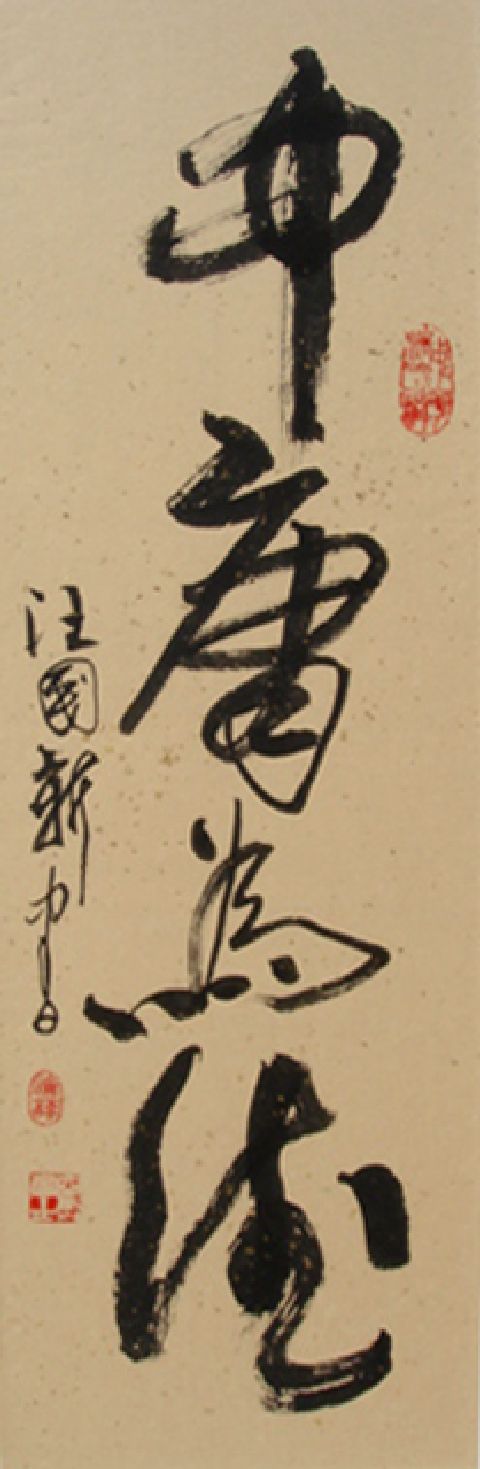 中庸為德
汪國新